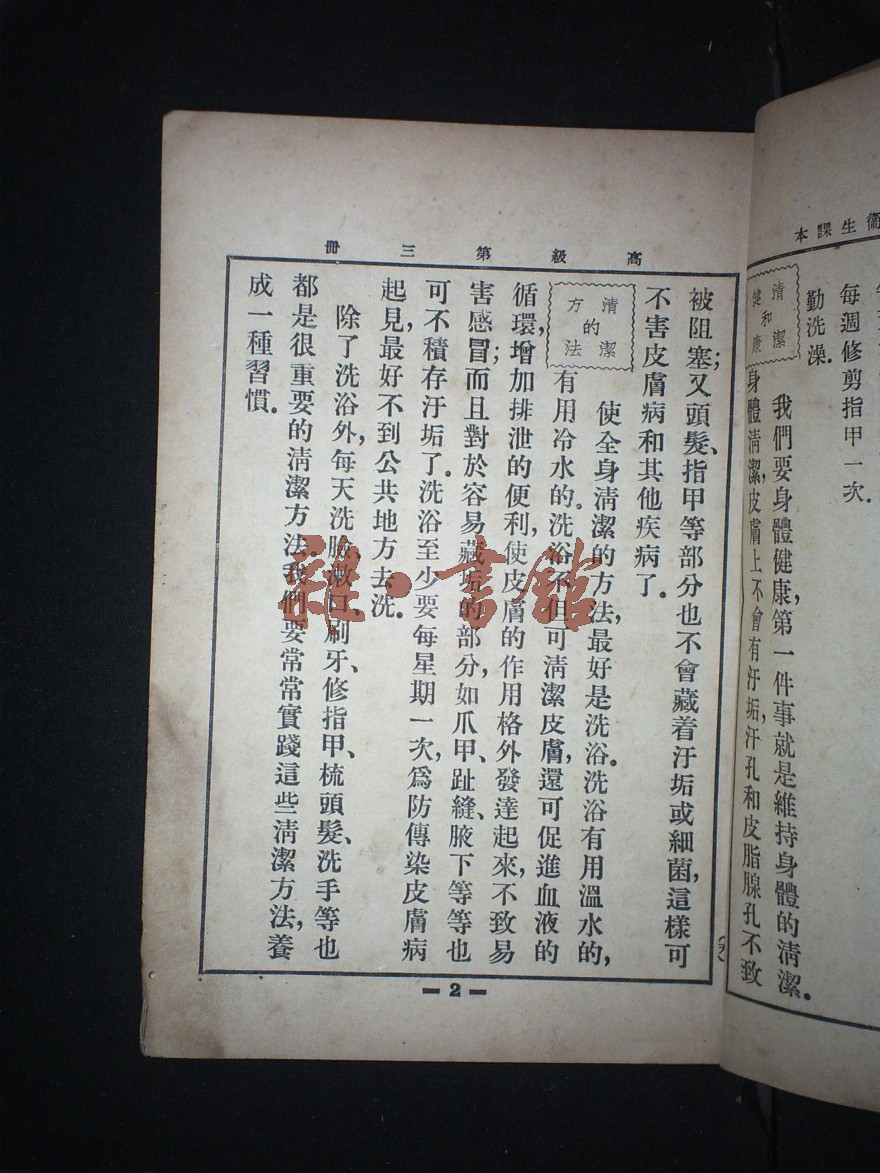 衞生課本
每週修剪指甲一次.
勤洗澡.
清潔
和
健康
我們要身體健康,第一件事就是維持身體的清潔.
身體清潔,皮膚上不會有汙垢,汗孔和皮脂腺孔不致
高級第三冊
被阻塞;又頭髮、指甲等部分也不會藏着汙垢或細菌,這樣可
不害皮膚病和其他疾病了.
清潔
的
方法
使全身清潔的方法,最好是洗浴.洗浴有用溫水的,
有用冷水的.洗浴不但可清潔皮膚,還可促進血液的
循環,增加排泄的便利,使皮膚的作用格外發達起來,不致易
害感冒;而且對於容易藏垢的部分如爪甲、趾縫、腋下等等也
可不積存汙垢了.洗浴至少要每星期一次,爲防傳染皮膚病
起見,最好不到公共地方去洗.
除了洗浴外,每天洗臉、漱口、刷牙、修指甲、梳頭髮、洗手等也
都是很重要的清潔方法.我們要常常實踐這些清潔方法,養
成一種習慣.
2
雜·書館